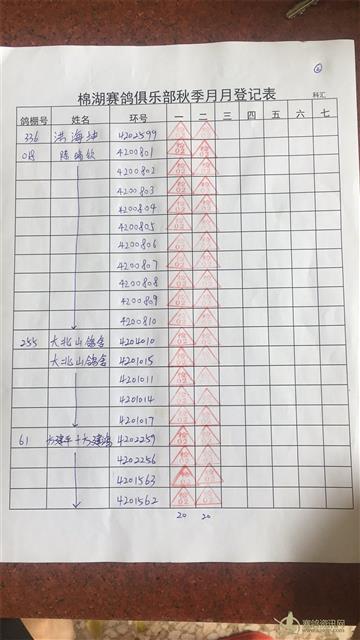 ②
棉湖赛鸽俱乐部秋季月月登记表
科汇
鸽棚号 姓名 环号 一 二 三 四 五 六 七
336 洪海坤 4202599
018 陈瑞钦 4200801
4200802
4200803
4200804
4200805
4200806
4200807
4200808
4200809
4200810
255 大北山鸽舍 4204010
大北山鸽舍 4201015
4201011
4201014
4201017
61 4202259
4202256
4201563
4201562
20 20
赛鸽资讯网